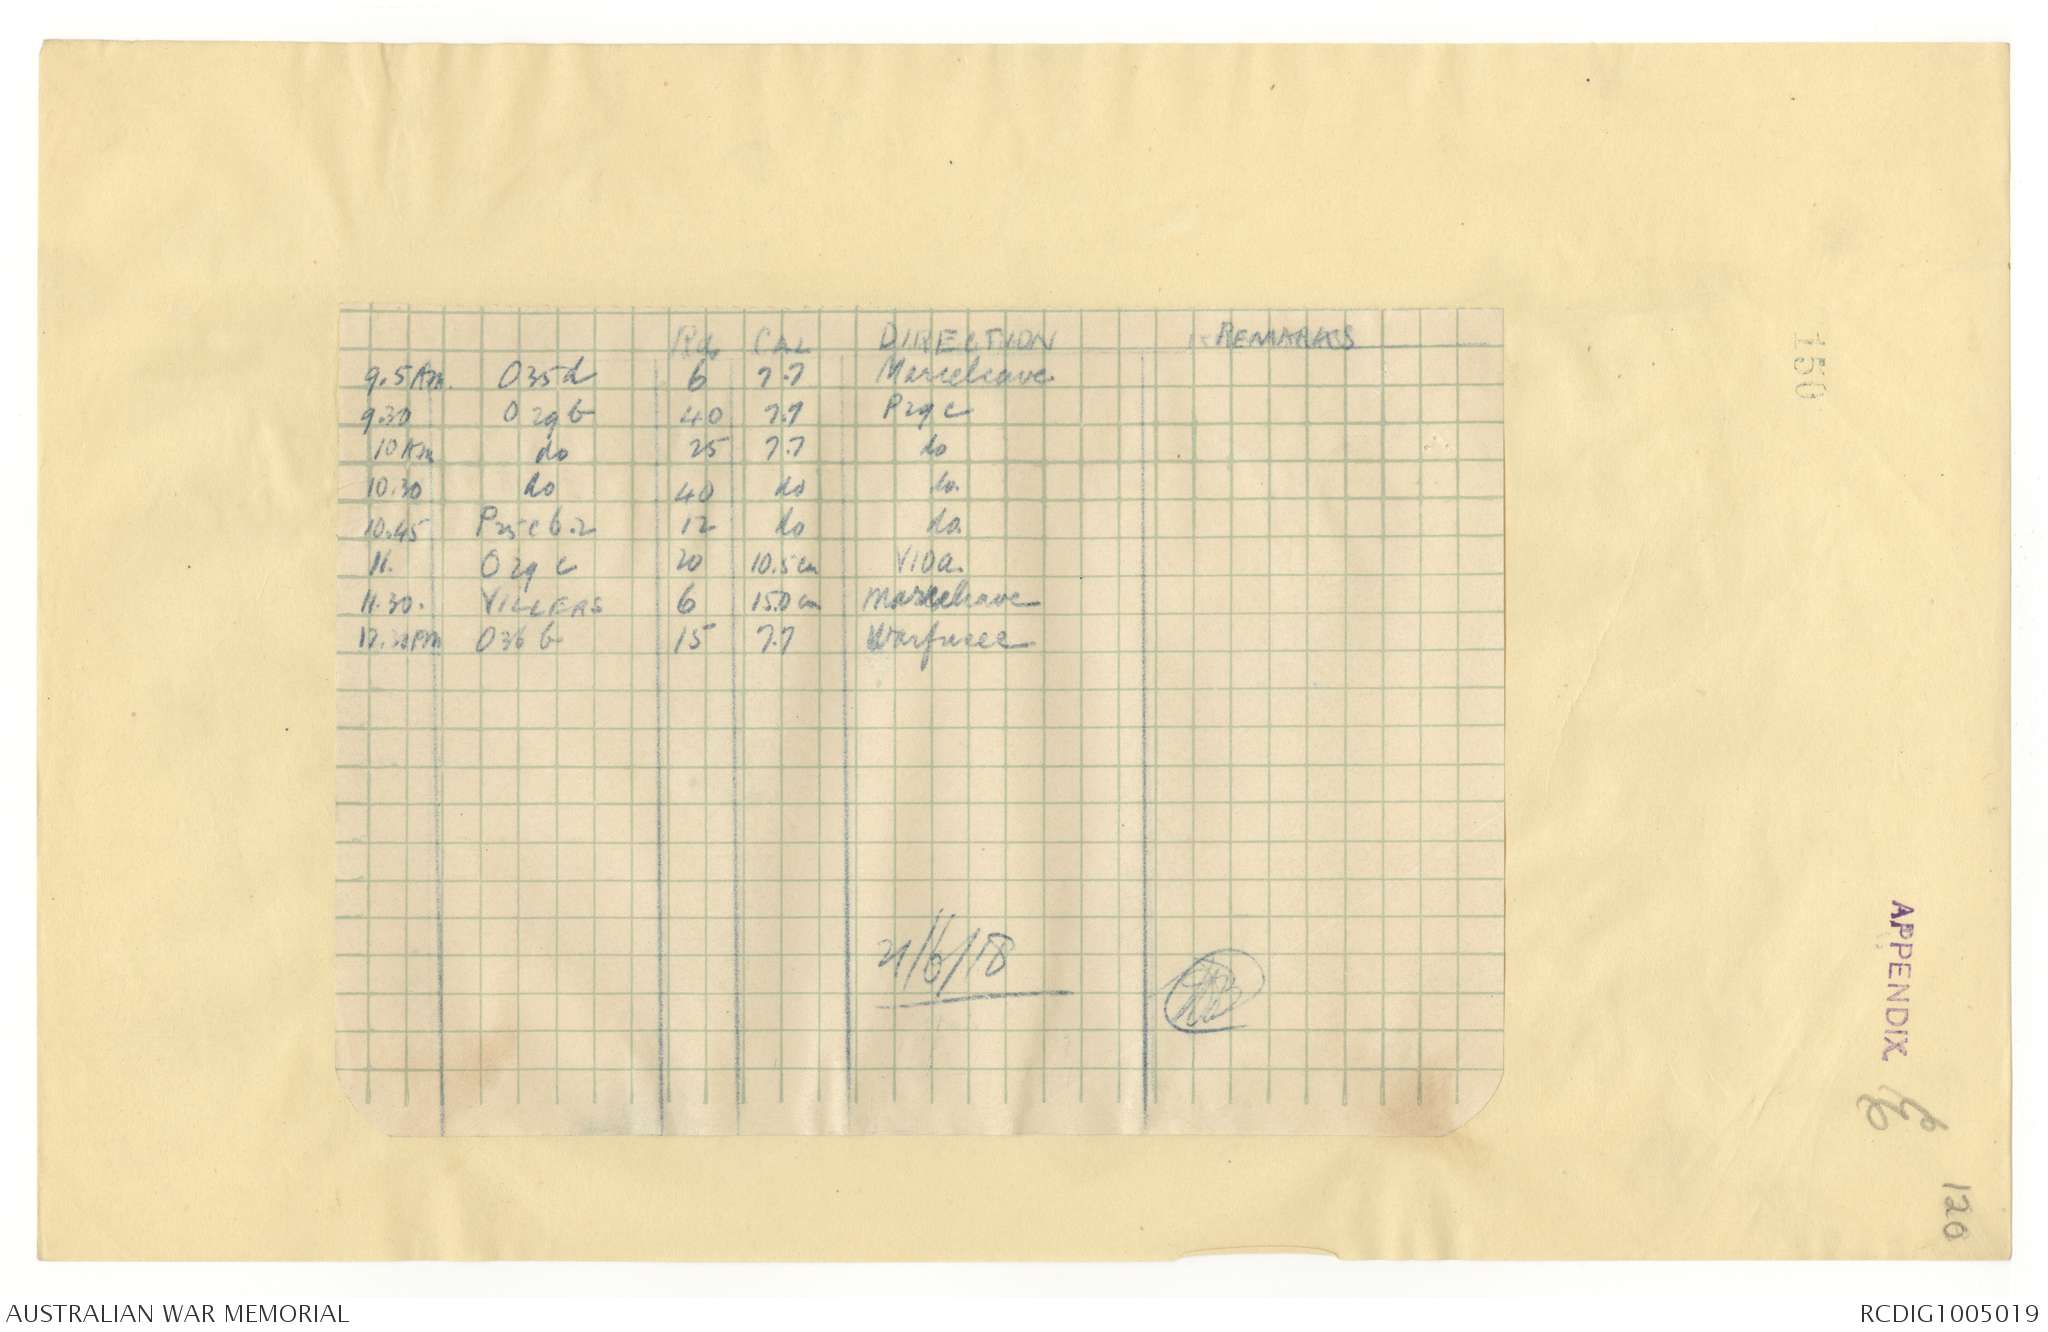 Rds CAL DIRECTION REMARKS
9.5 Am. O35d 6 7.7 Marcelcave
9.30 O29b 40 7.7 P29c
10 Am do 25 7.7 do
10.30 do 40 do do.
10.45 P25c6.2 12 do do.
11. O29c 20 10.5cm V10a.
11.30. VILLERS 6 15.0cm Marcelcave
12.30PM O36b 15 7.7 Warfusee
21/6/18
150
APPENDIX
120
AUSTRALIAN WAR MEMORIAL
RCDIG1005019